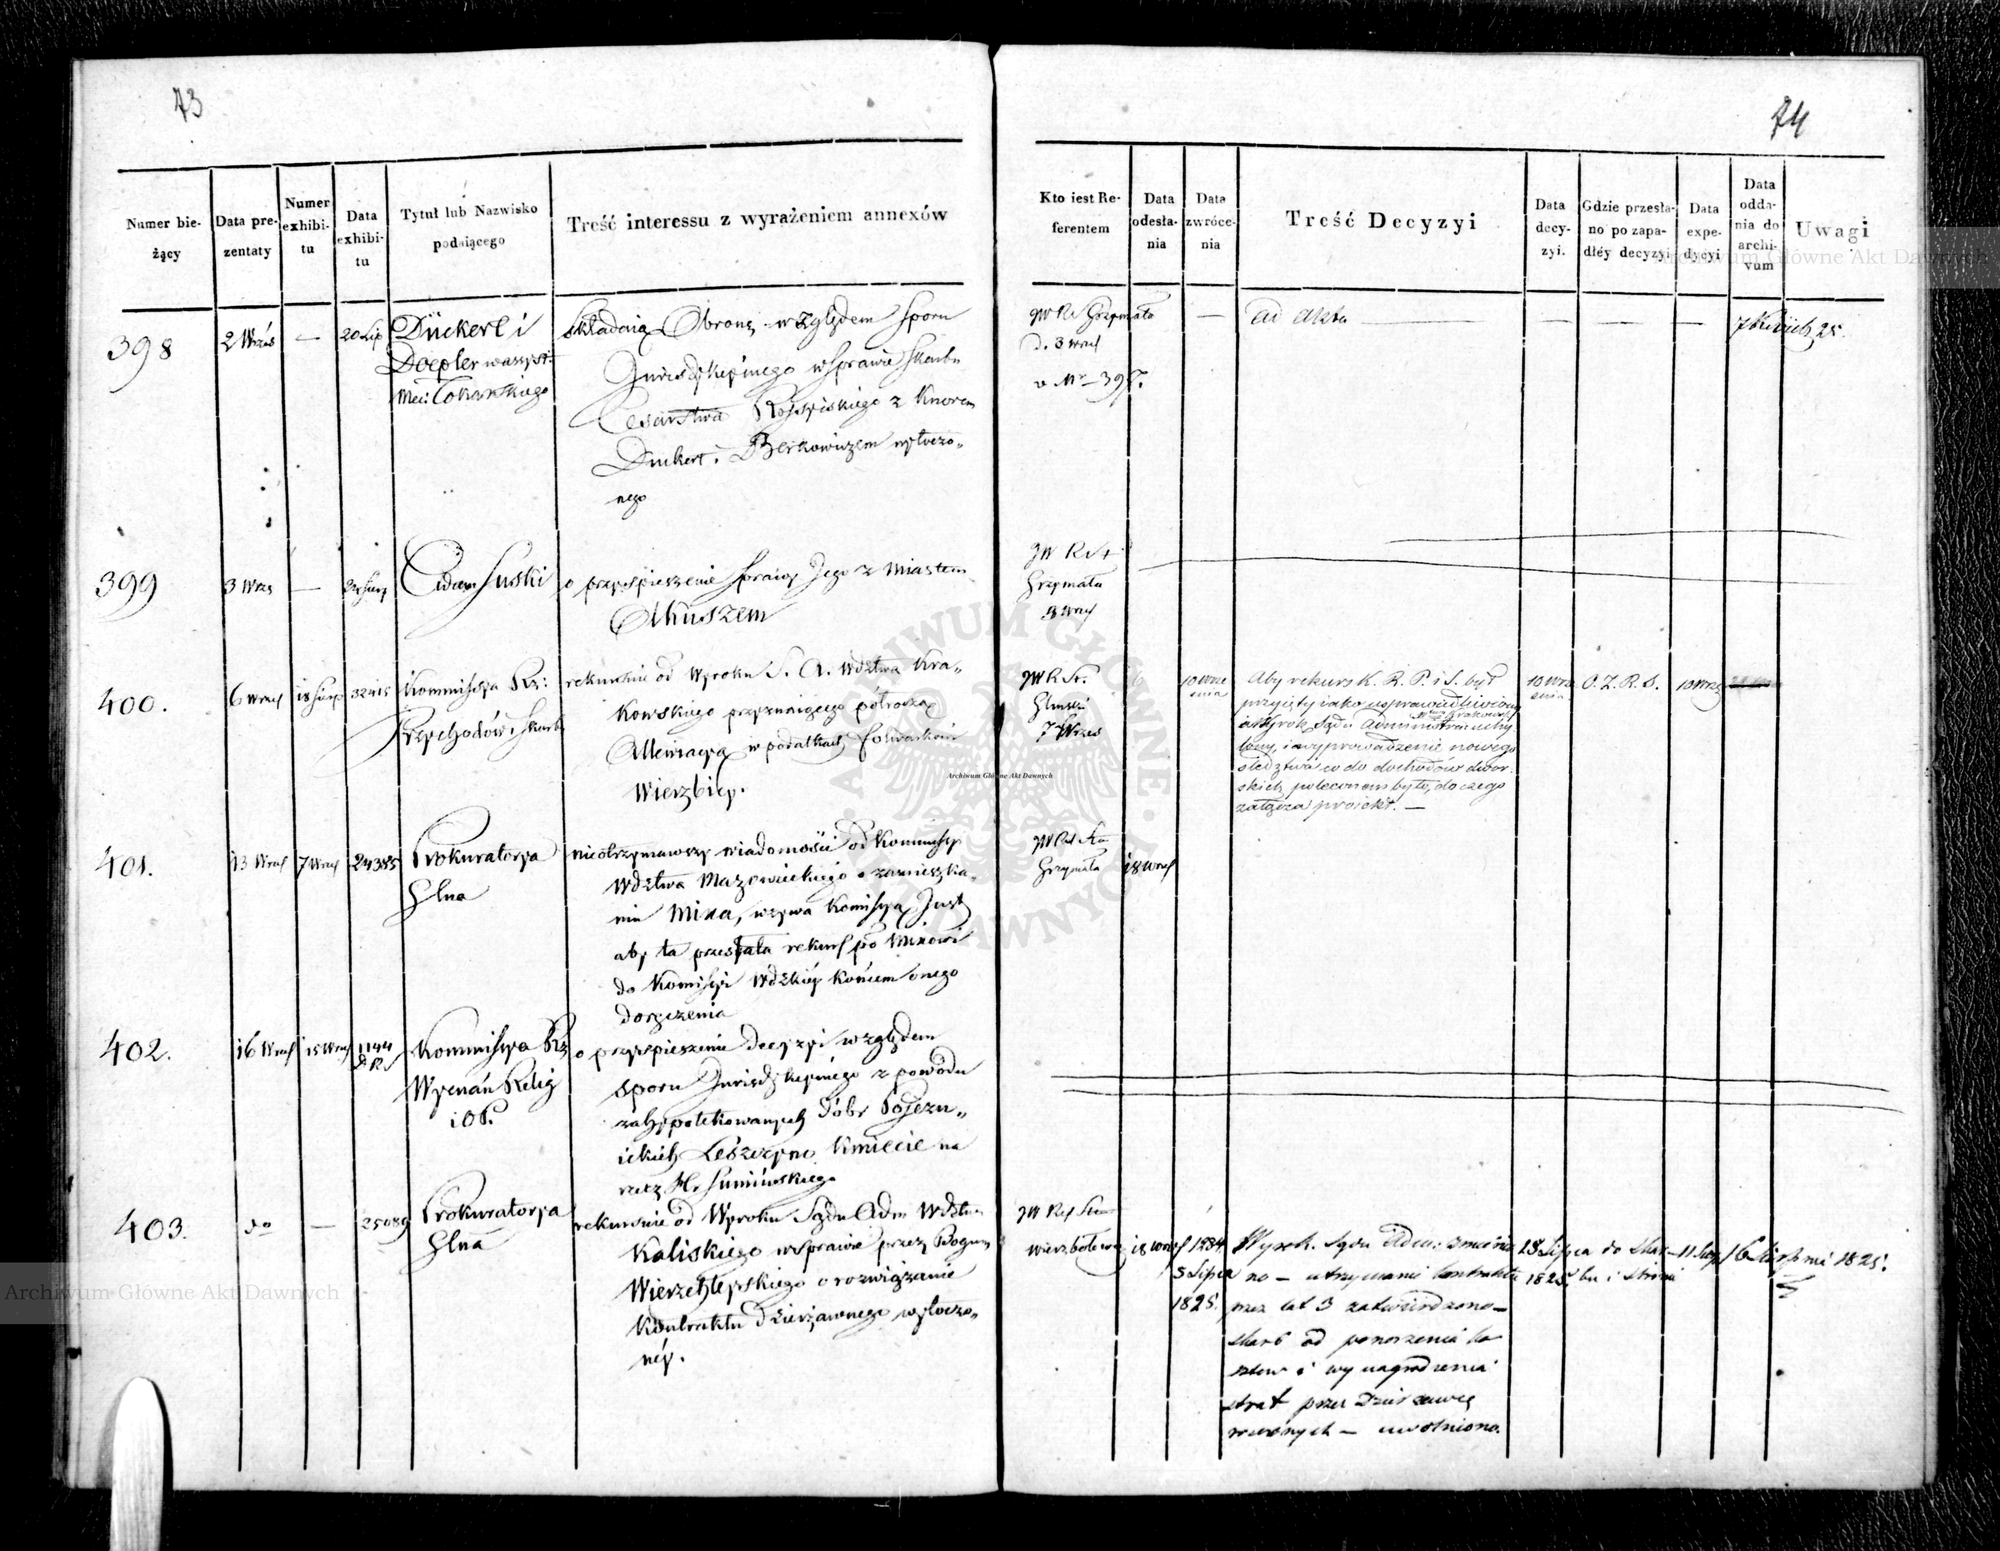 73
74
Numer bieżący
Data prezentaty
Numer exhibitu
Data exhibitu
Tytuł lub Nazwisko podaiącego
Treść interessu z wyrażeniem annexów
Kto iest Referentem
Data odesłania
Data zwrócenia
Treść Decyzyi
Data decyzyi.
Gdzie przesłano po zapadłéy decyzyi
Data expedycyi
Data oddania do archivum
Uwagi
398
2 Wrześ
—
20 Lip
Dückert i
Doepler w assyst:
Mec: Tokarskiego
składaią Obronę względem sporu
Jurisdykcyinego w sprawie skarbu
Cesarstwa Rossyiskiego z Knorem
Duckert i Berkowiczem wytoczo„
nego
JW R. Grzymała
d. 3 Wrześ
v Nr 397.
—
ad akta
— — — —
25.
399
3 Wrześ
—
Adam Suski
o przyspieszenie sprawy Jego z Miastem
Olkuszem
JW R. St
Grzymała
3 Wrześ
400.
6 Wrześ
18 Sierp
32415
Kommissya Rz:
Przychodów i Skarbu
rekursuie od Wyroku S. A. Wdztwa Kra„
kowskiego przyznaiącego półroczną
Allewiacyą w podatkach folwarkowi
Wierzbicy.
JW R. St.
Glinski
7 Wrześ
10 Wrze
śnia
Aby rekurs K. R. P. i S. był
przyięty iako usprawiedliwiony
a Wyrok Sądu Administra: uchy
lony, i wyprowadzenie nowego
śledztwa co do dochodów dwor„
skich poleconem było, do czego
załącza proiekt. —
10 Wrze
śnia
O. Z. R. S.
10 Wrześ
401.
13 Wrześ
7 Wrześ
24385
Prokuratorya
Glna
nieotrzymawszy wiadomości od Kommissyi
Wdztwa Mazowieckiego o zamieszka„
niu Mixa, wzywa Komissyą Just
aby ta przesłała rekurs po Mixowi
do Komissyi Wdzkiey końcem onego
doręczenia
Grzymała
18 Wrześ
402.
16 Wrześ
15 Wrześ
1144
Kommissya Rz
Wyznań Relig
i O. P.
o przyspieszenie decyzyi względem
sporu Jurisdykcyinego z powodu
zahypotekowanych Dóbr Pojezu„
ickich Leszczyno Kmiecie na
rzecz Hr. Sumińskiego
403.
do
—
25089
Prokuratorya
Glna
rekursuie od Wyroku Sądu Adm Wdztwa
Kaliskiego w sprawie przez Bogum
Wierzchleyskiego o rozwiązanie
Kontraktu Dzierżawnego wytoczo„
néy.
Wierzbołowicz
18 Wrześ
1234
5 Lipca
1825.
Wyrok Sądu Adm: zmienio
no — utrzymanie kontraktu
przez lat 3 zatwierdzono —
skarb od ponoszenia ko
sztow i wynagrodzenia
strat przez Dzierżawcę
— uwolniono.
28 Lipca
1825.
do Skar
bu i Stronie
16 Sierpnia 1825.
Archiwum Główne Akt Dawnych
Archiwum Główne Akt Dawnych
Archiwum Główne Akt Dawnych
ARCHIWUM GŁÓWNE AKT DAWNYCH